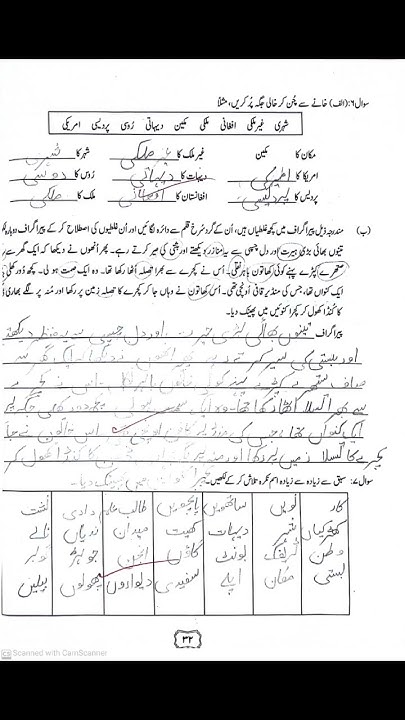 سوال ۶: (الف) خانے سے چُن کر خالی جگہ پُر کریں، مثلاً
شہری غیر ملکی افغانی ملکی مکین دیہاتی رُوسی پردیسی امریکی
مکان کا مکین غیر ملک کا ملکی شہر کا شہری
امریکا کا دیہات کا دیہاتی رُوس کا
پردیس کا پردیسی افغانستان کا افغانی ملک کا ملکی
(ب) مندرجہ ذیل پیراگراف میں کچھ غلطیاں ہیں، اُن کے گرد سُرخ قلم سے دائرہ لگائیں اور اُن غلطیوں کی اصطلاح کر کے پیراگراف دوبارہ لکھیں
تینوں بھائی بڑی ہیرت اور دل چسپی سے یہ منازر دیکھتے اور بستی کی سیر کرتے رہے۔ پھر اُنھوں نے دیکھا کہ ایک گھر سے
کپڑے پہنے کوئی کھاتون باہر نکلی۔ اُس نے کچرے سے بھرا تھیلا اُٹھا رکھا تھا۔ وہ ایک سمت ہو لی۔ کچھ دُور کھلی جگہ
ایک کنواں تھا، جس کی منڈیر کافی اُونچی تھی۔ اُس کھاتون نے وہاں جا کر کچرے کا تھیلا زمین پر رکھا اور مُنہ پر لگے بھاری ڈھکن
کا کُنڈا کھول کر کچرا کنوئیں میں پھینک دیا۔
پیراگراف تینوں بھائی بڑی اور دل چسپی سے یہ منظر دیکھتے
اور بستی کی سیر کرتے رہے پھر انھوں نے دیکھا کہ ایک گھر سے
صاف ستھرے کپڑے پہنے کوئی خاتون باہر نکلی اس نے کچرے
سے بھرا تھیلا اٹھا رکھا تھا وہ ایک سمت ہو لی کچھ دور کھلی جگہ
ایک کنواں تھا جس کی منڈیر کافی اونچی تھی اس خاتون نے جا
کچرے کا تھیلا زمین پر رکھا اور منہ پر کا کنڈا کھول کر
پھینک دیا۔
سوال ۷: سبق سے زیادہ سے زیادہ اسم نکرہ تلاش کر کے لکھیں۔
کار نویں ساتھیوں پانچویں طالب علم دادی
کھڑکیاں شہر دیہات کھیت میدان ندیاں نالے
وطن ٹریفک بونٹ گاڑی انجن جوہڑ گوبر
بستی مکان اپلے سفیدی دیواروں پھولوں بیلیں
۳۲
Scanned with CamScanner